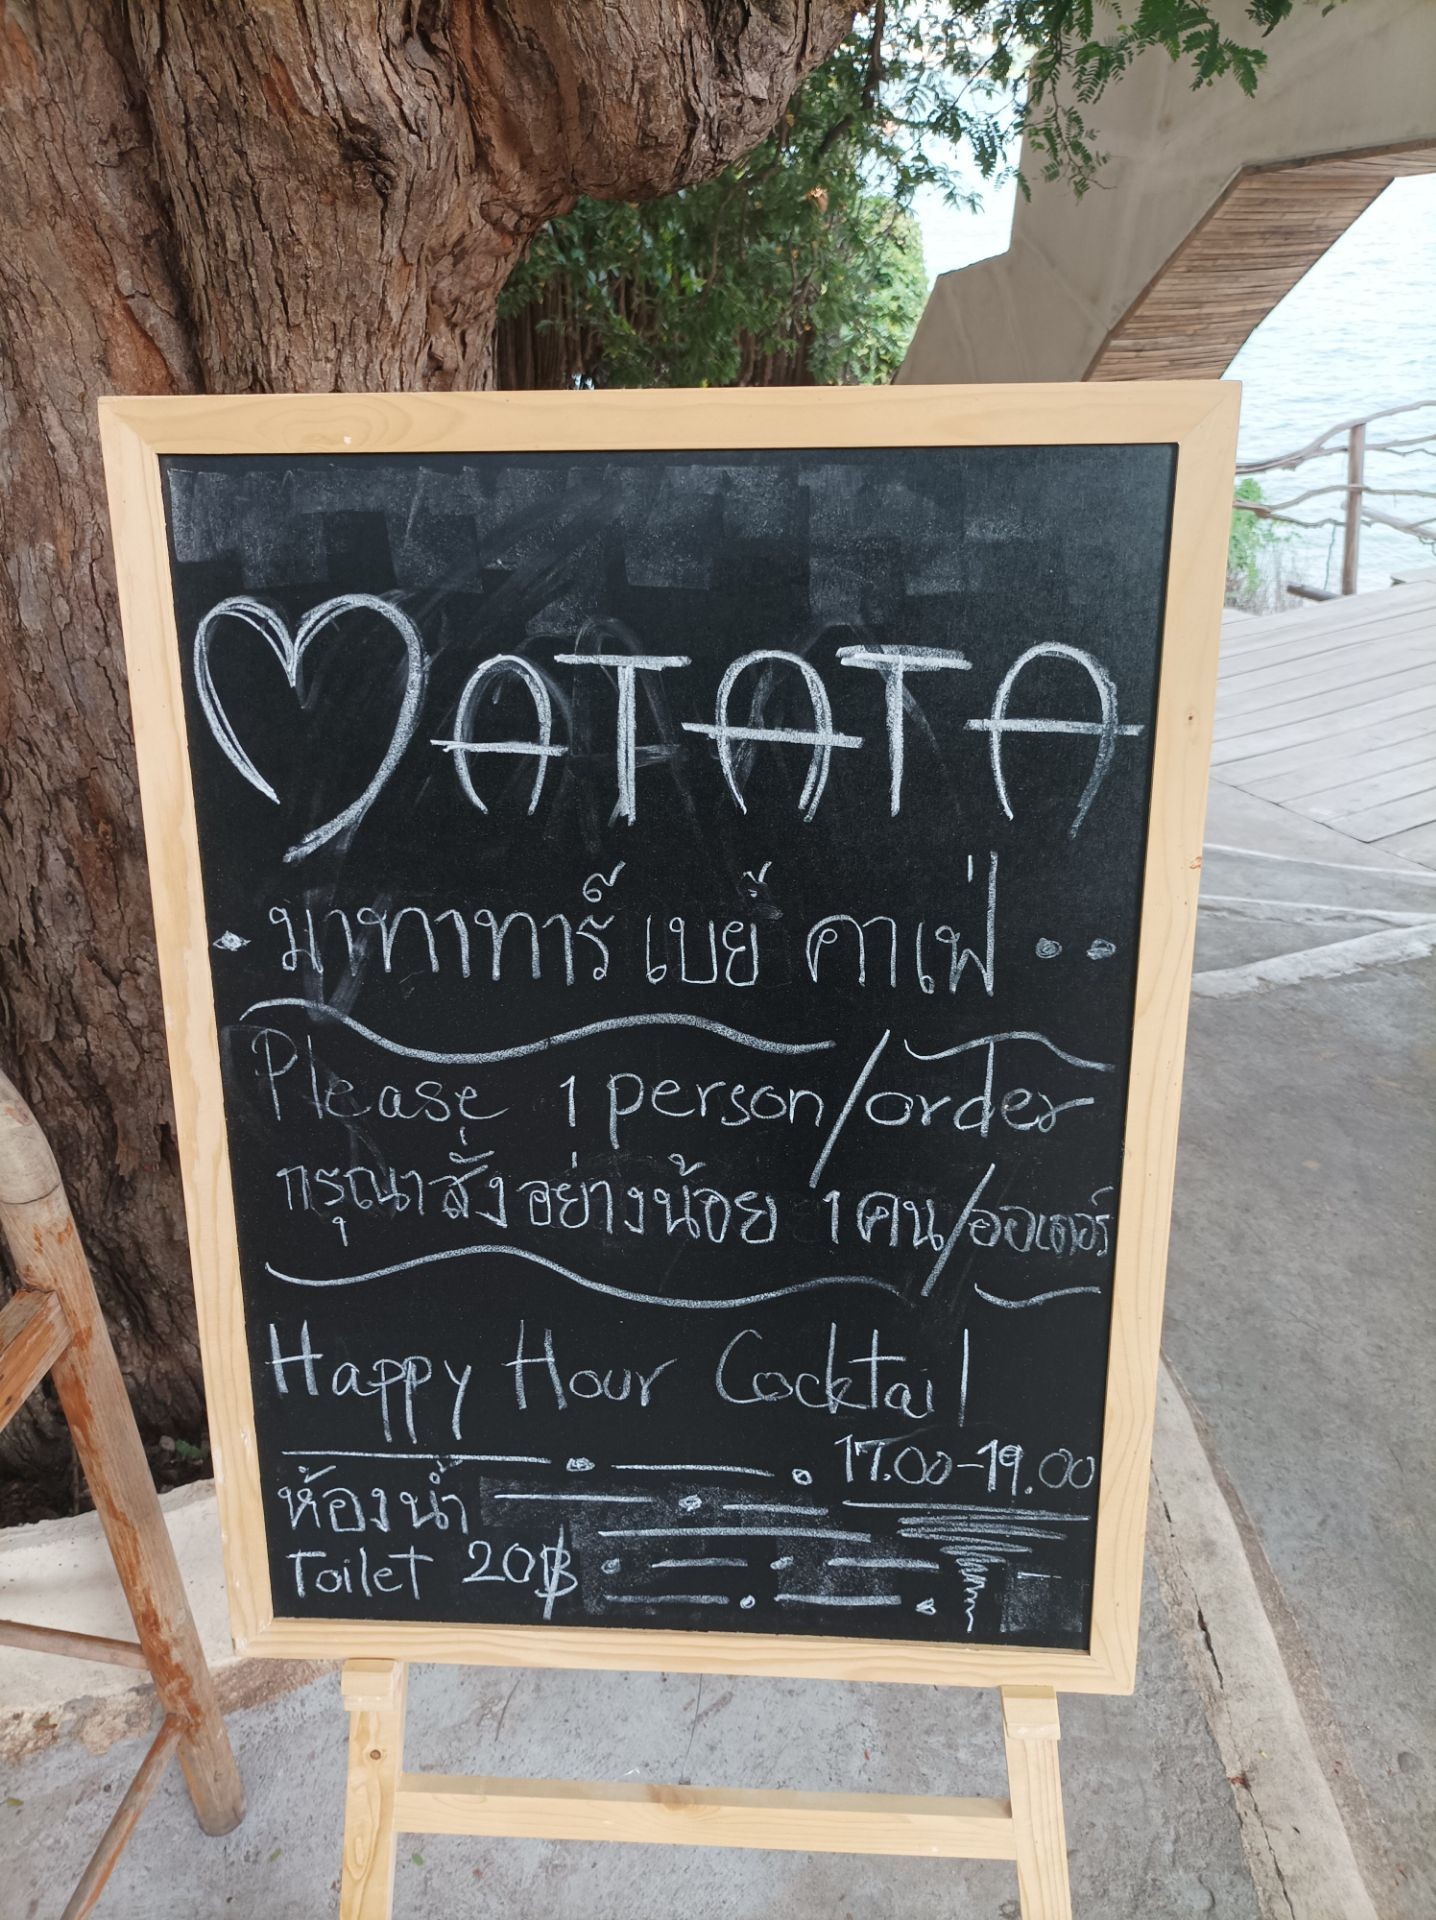 MATATA
มาทาทาร์ เบย์ คาเฟ่
Please 1 person/order
กรุณาสั่งอย่างน้อย 1 คน/ออเดอร์
Happy Hour Cocktail
17.00-19.00
ห้องน้ำ
Toilet 20฿